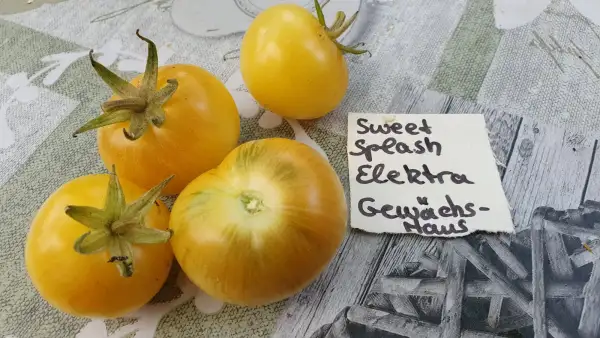 Sweet
Splash
Elektra
Gewächs-
Haus